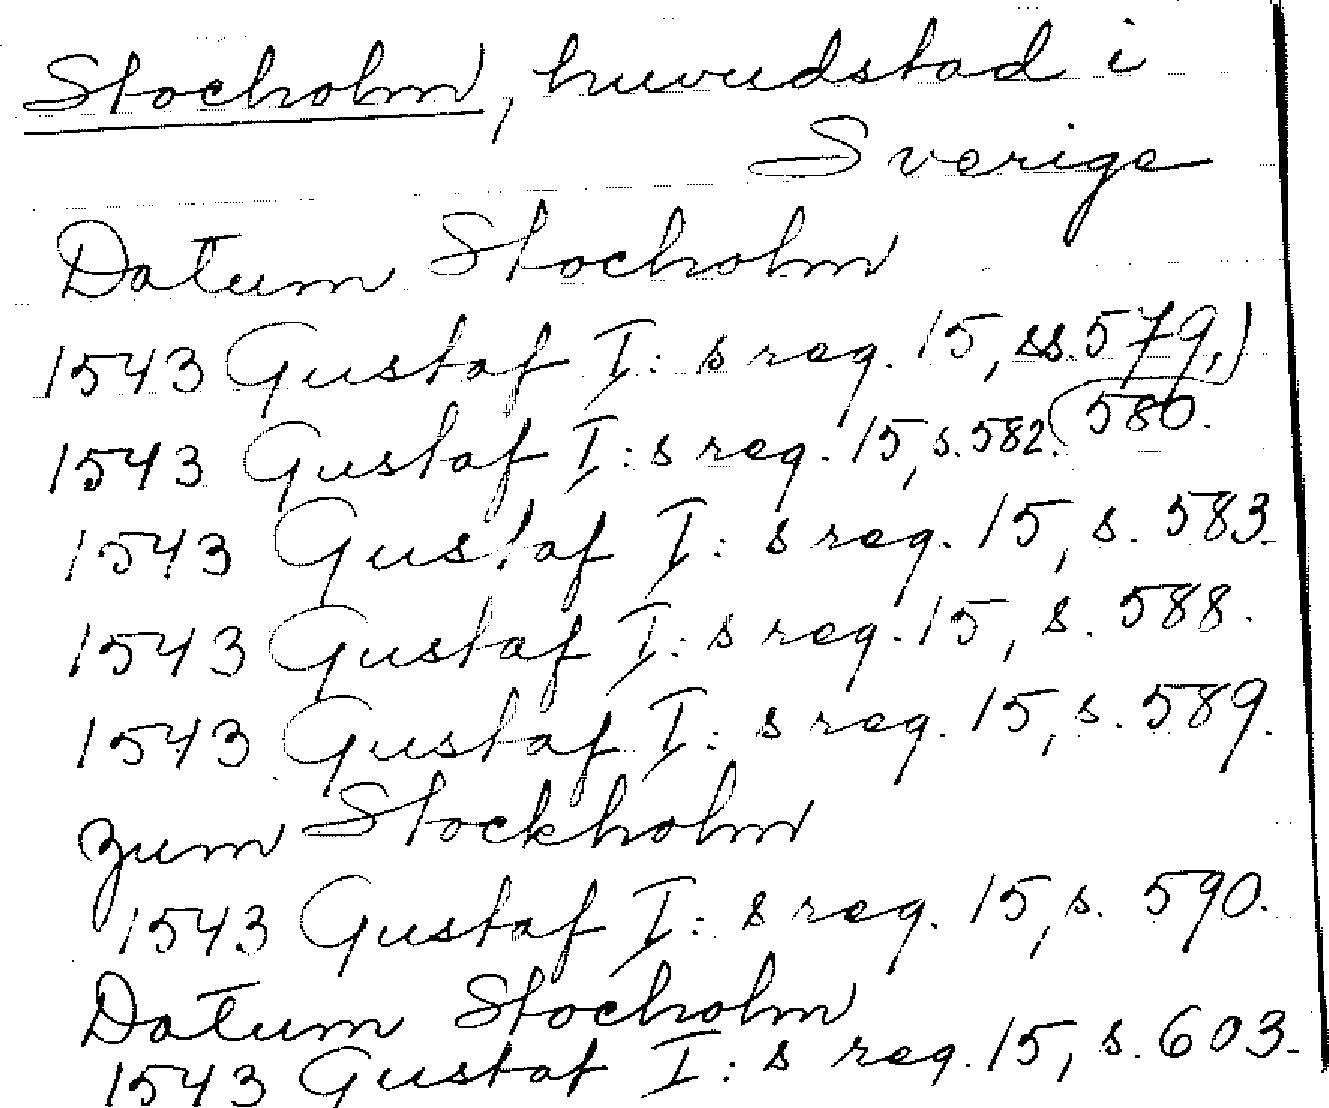 Stocholm, huvudstad i
Sverige
Datum Stocholm
1543 Gustaf I: s reg. 15, ss. 579,
580.
1543 Gustaf I: s reg. 15, s. 582.
1543 Gustaf I: s reg. 15, s. 583.
1543 Gustaf I: s reg. 15, s. 588.
1543 Gustaf I: s reg. 15, s. 589.
zum Stockholm
1543 Gustaf I: s reg. 15, s. 590.
Datum Stocholm
1543 Gustaf I: s reg. 15, s. 603.